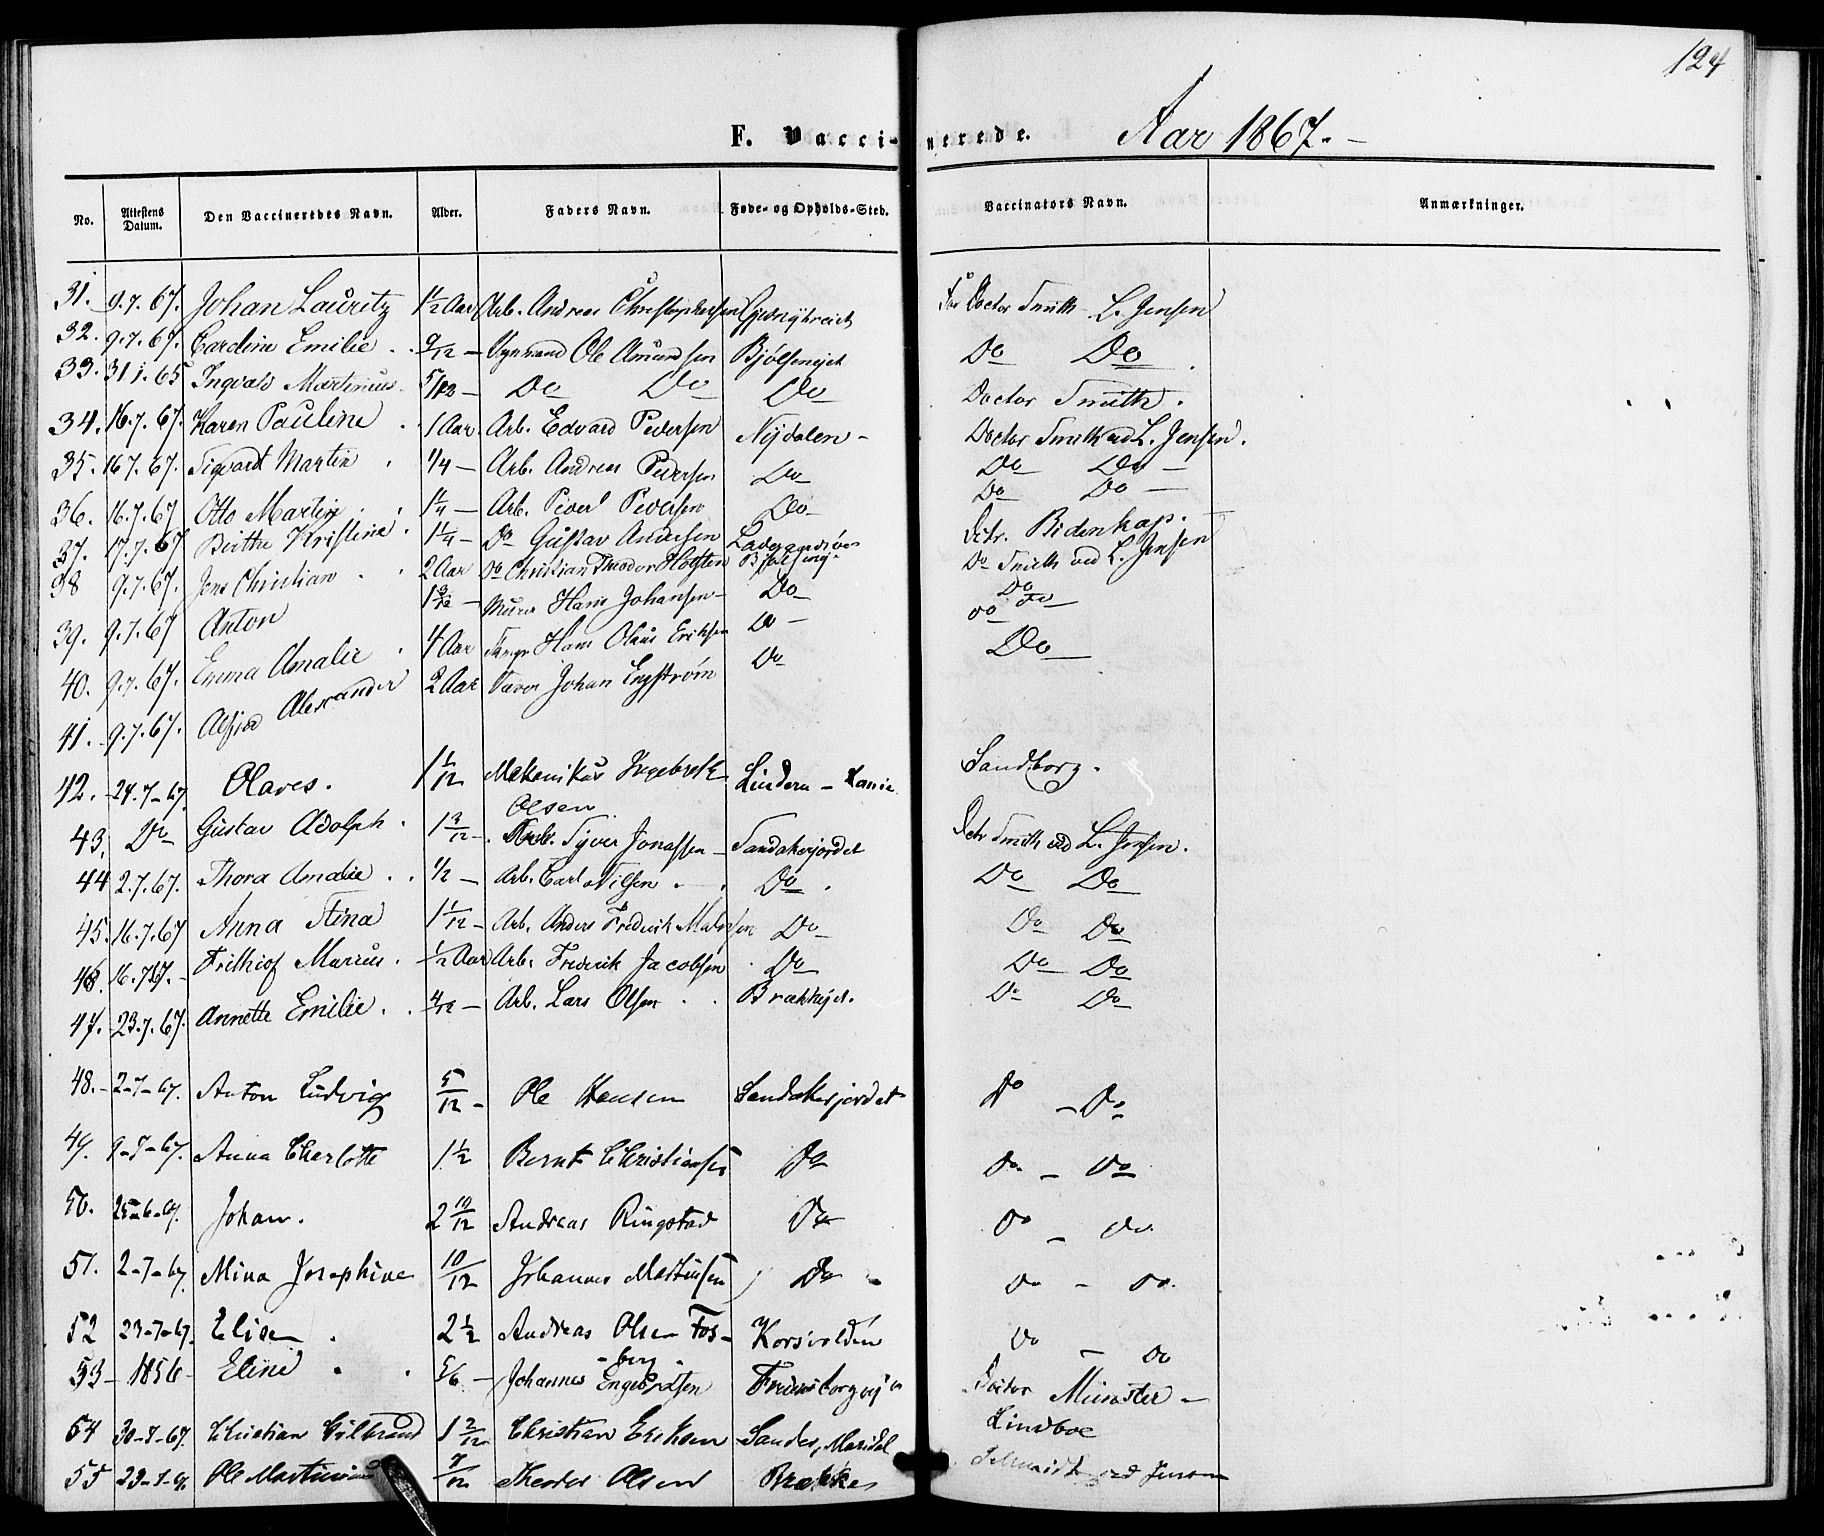 124
F. Vaccinerede. Aar 1867.
No. Attestens Datum. Den Vaccineredes Navn. Alder. Faders Navn. Føde- og Opholds-Sted. Vaccinators Navn. Anmærkninger.
31. 9.7.67. Johan Lauritz 1½ Aar Arb. Andreas Christophersen Doctor Smith L. Jensen
32. 9.7.67. Caroline Emilie 9/12 Ole Amundsen Bjølsenejet Do Do
33. 31 1.65 Ingvald Martinius Do Do Do Doctor Smith.
34. 16.7.67. Karen Pauline 1 Aar Arb. Edvard Pedersen Nydalen Doctor Smith ved L. Jensen.
35. 16.7.67. Sigvard Martin 1/4 Arb. Andreas Pedersen Do Do Do
36. 16.7.67 Otto Martin 1¼ Arb. Peder Pedersen Do Do Do
37. 17.7.67 Birthe Kristine 1¼ Do Gustav Andersen Dctr. Bidenkap.
38 9.7.67. Jens Christian 2 Aar Do Christian Theodor Holsten Do Smith ved L. Jensen
39. 9.7.67 Anton Murer Hans Johansen Do Do Do
40. 9.7.67. Emma Amalie Hans Olaus Eriksen Do Do
41. 9.7.67. Alfred Alexander 2 Aar Johan Engstrøm Do Do
42. 24.7-67. Olaves. 1 1/12 Mekanikus Ingebreth Olsen Lindern Sandborg.
43. Do Gustav Adolph. 1 3/12 Arb. Syver Jonassen Sandakerjordet Dctr Smith ved L. Jensen.
44 2.7.67. Thora Amalie 1/2 Arb. Carl Nilsen Do Do Do
45. 16.7.67 Anna Stina 1 1/12 Arb. Anders Frederik Do Do Do
46. 16.7.67. Frithiof Marius. ½ Aar Arb. Frederik Jacobsen Do Do Do
47. 23.7.67. Annette Emilie. 4/12 Arb. Lars Olsen Brækkejet. Do Do
48. 2-7-67. Anton Ludvig 5/12 Ole Hansen Sandakerjordet Do Do
49. 9-7-67. Anna Charlotte 1½ Bernt Christiansen Do Do Do
50. 25-6-67. Johan. 2 10/12 Andreas Ringstad Do Do Do
51. 2-7-67 Mina Josephine 10/12 Johannes Martinsen Do Do Do
52 23-7-67. Elise 2½ Andreas Olsen Fosberg Korsvolden Do Do
53 1856 Eline 5/6 Johannes Engebretsen Doctor Münster
54 30-7-67. Christian 1 2/12 Christian Eriksen Sander, Maridal Lindboe
55 23-7-67 Ole Martinius 7/12 Olsen Brække Schmidt ved Jensen